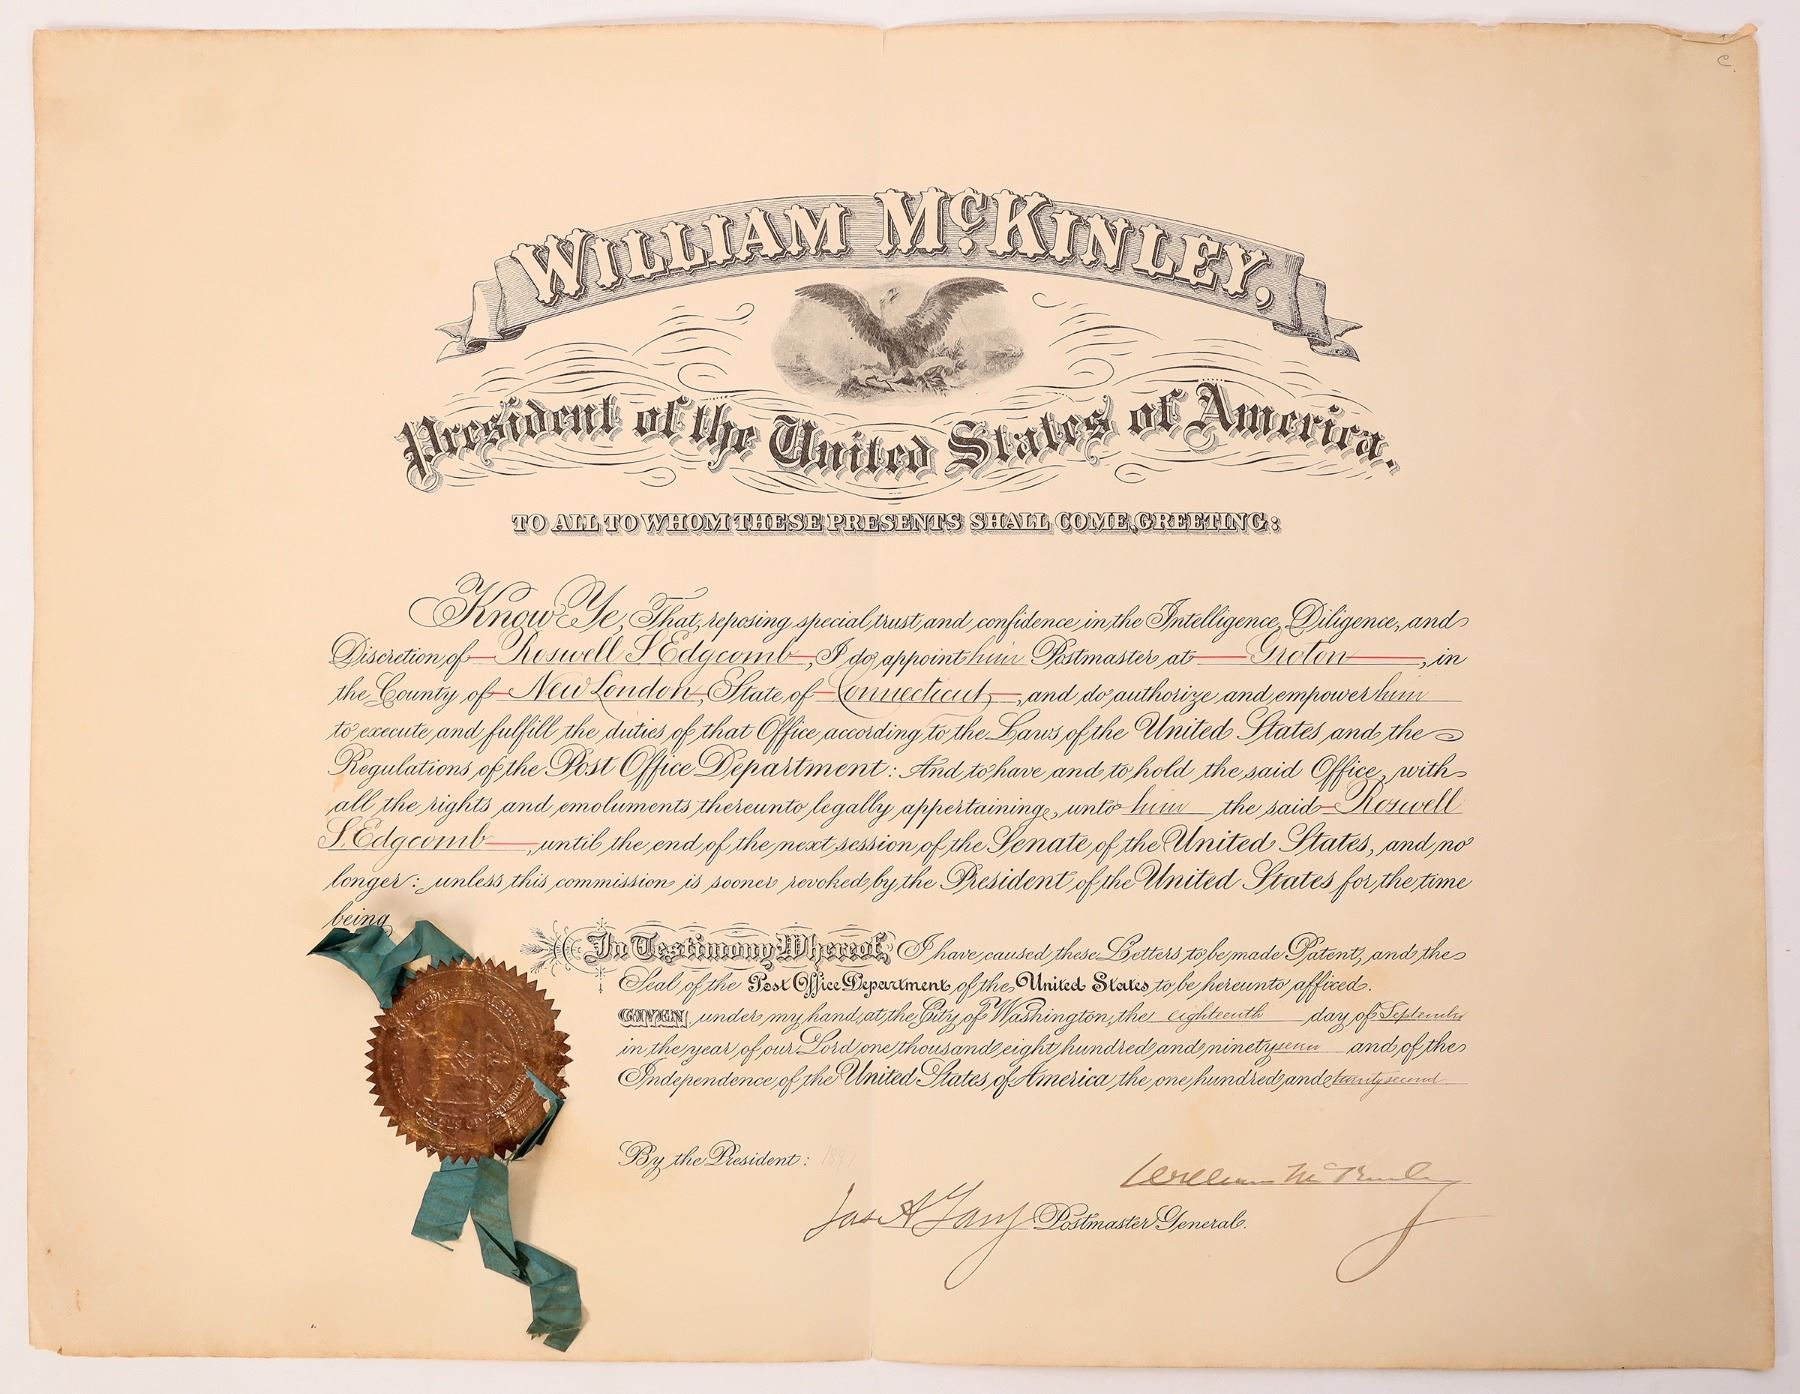 WILLIAM McKINLEY,
President of the United States of America.
TO ALL TO WHOM THESE PRESENTS SHALL COME, GREETING:
Know Ye, That, reposing special trust and confidence in the Intelligence, Diligence, and
Discretion of Roswell S Edgcomb, I do appoint him Postmaster at Groton, in
the County of New London, State of Connecticut, and do authorize and empower him
to execute and fulfill the duties of that Office according to the Laws of the United States and the
Regulations of the Post Office Department: And to have and to hold the said Office, with
all the rights and emoluments thereunto legally appertaining, unto him the said Roswell
S. Edgcomb, until the end of the next session of the Senate of the United States, and no
longer: unless this commission is sooner revoked by the President of the United States for the time
being
In Testimony Whereof, I have caused these Letters to be made Patent, and the
Seal of the Post Office Department of the United States to be hereunto affixed.
GIVEN under my hand, at the City of Washington, the eighteenth day of September
in the year of our Lord one thousand eight hundred and ninety seven and of the
Independence of the United States of America the one hundred and twenty second
By the President: 1897
William McKinley
Jas A Gary Postmaster General.
C.